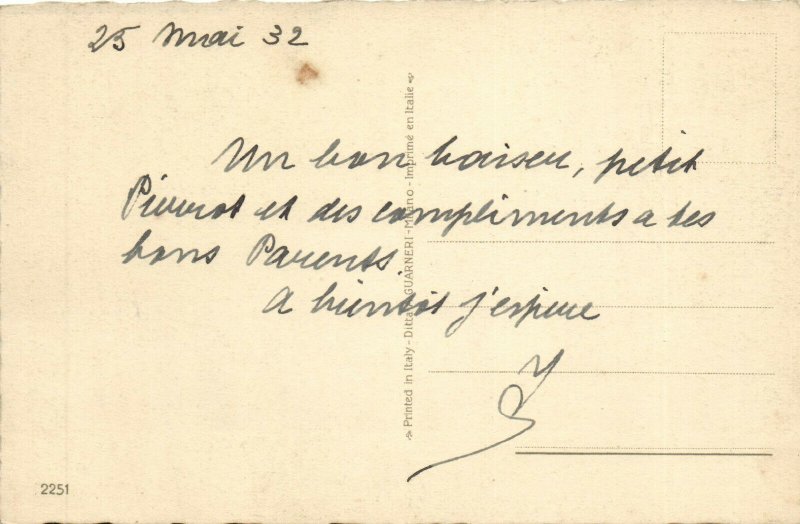 25 Mai 32
Un bon baiser, petit
Pierrot et des compliments a tes
bons Parents.
A bientôt j'espère
Printed in Italy - Ditta GUARNERI - Milano - Imprimé en Italie
2251